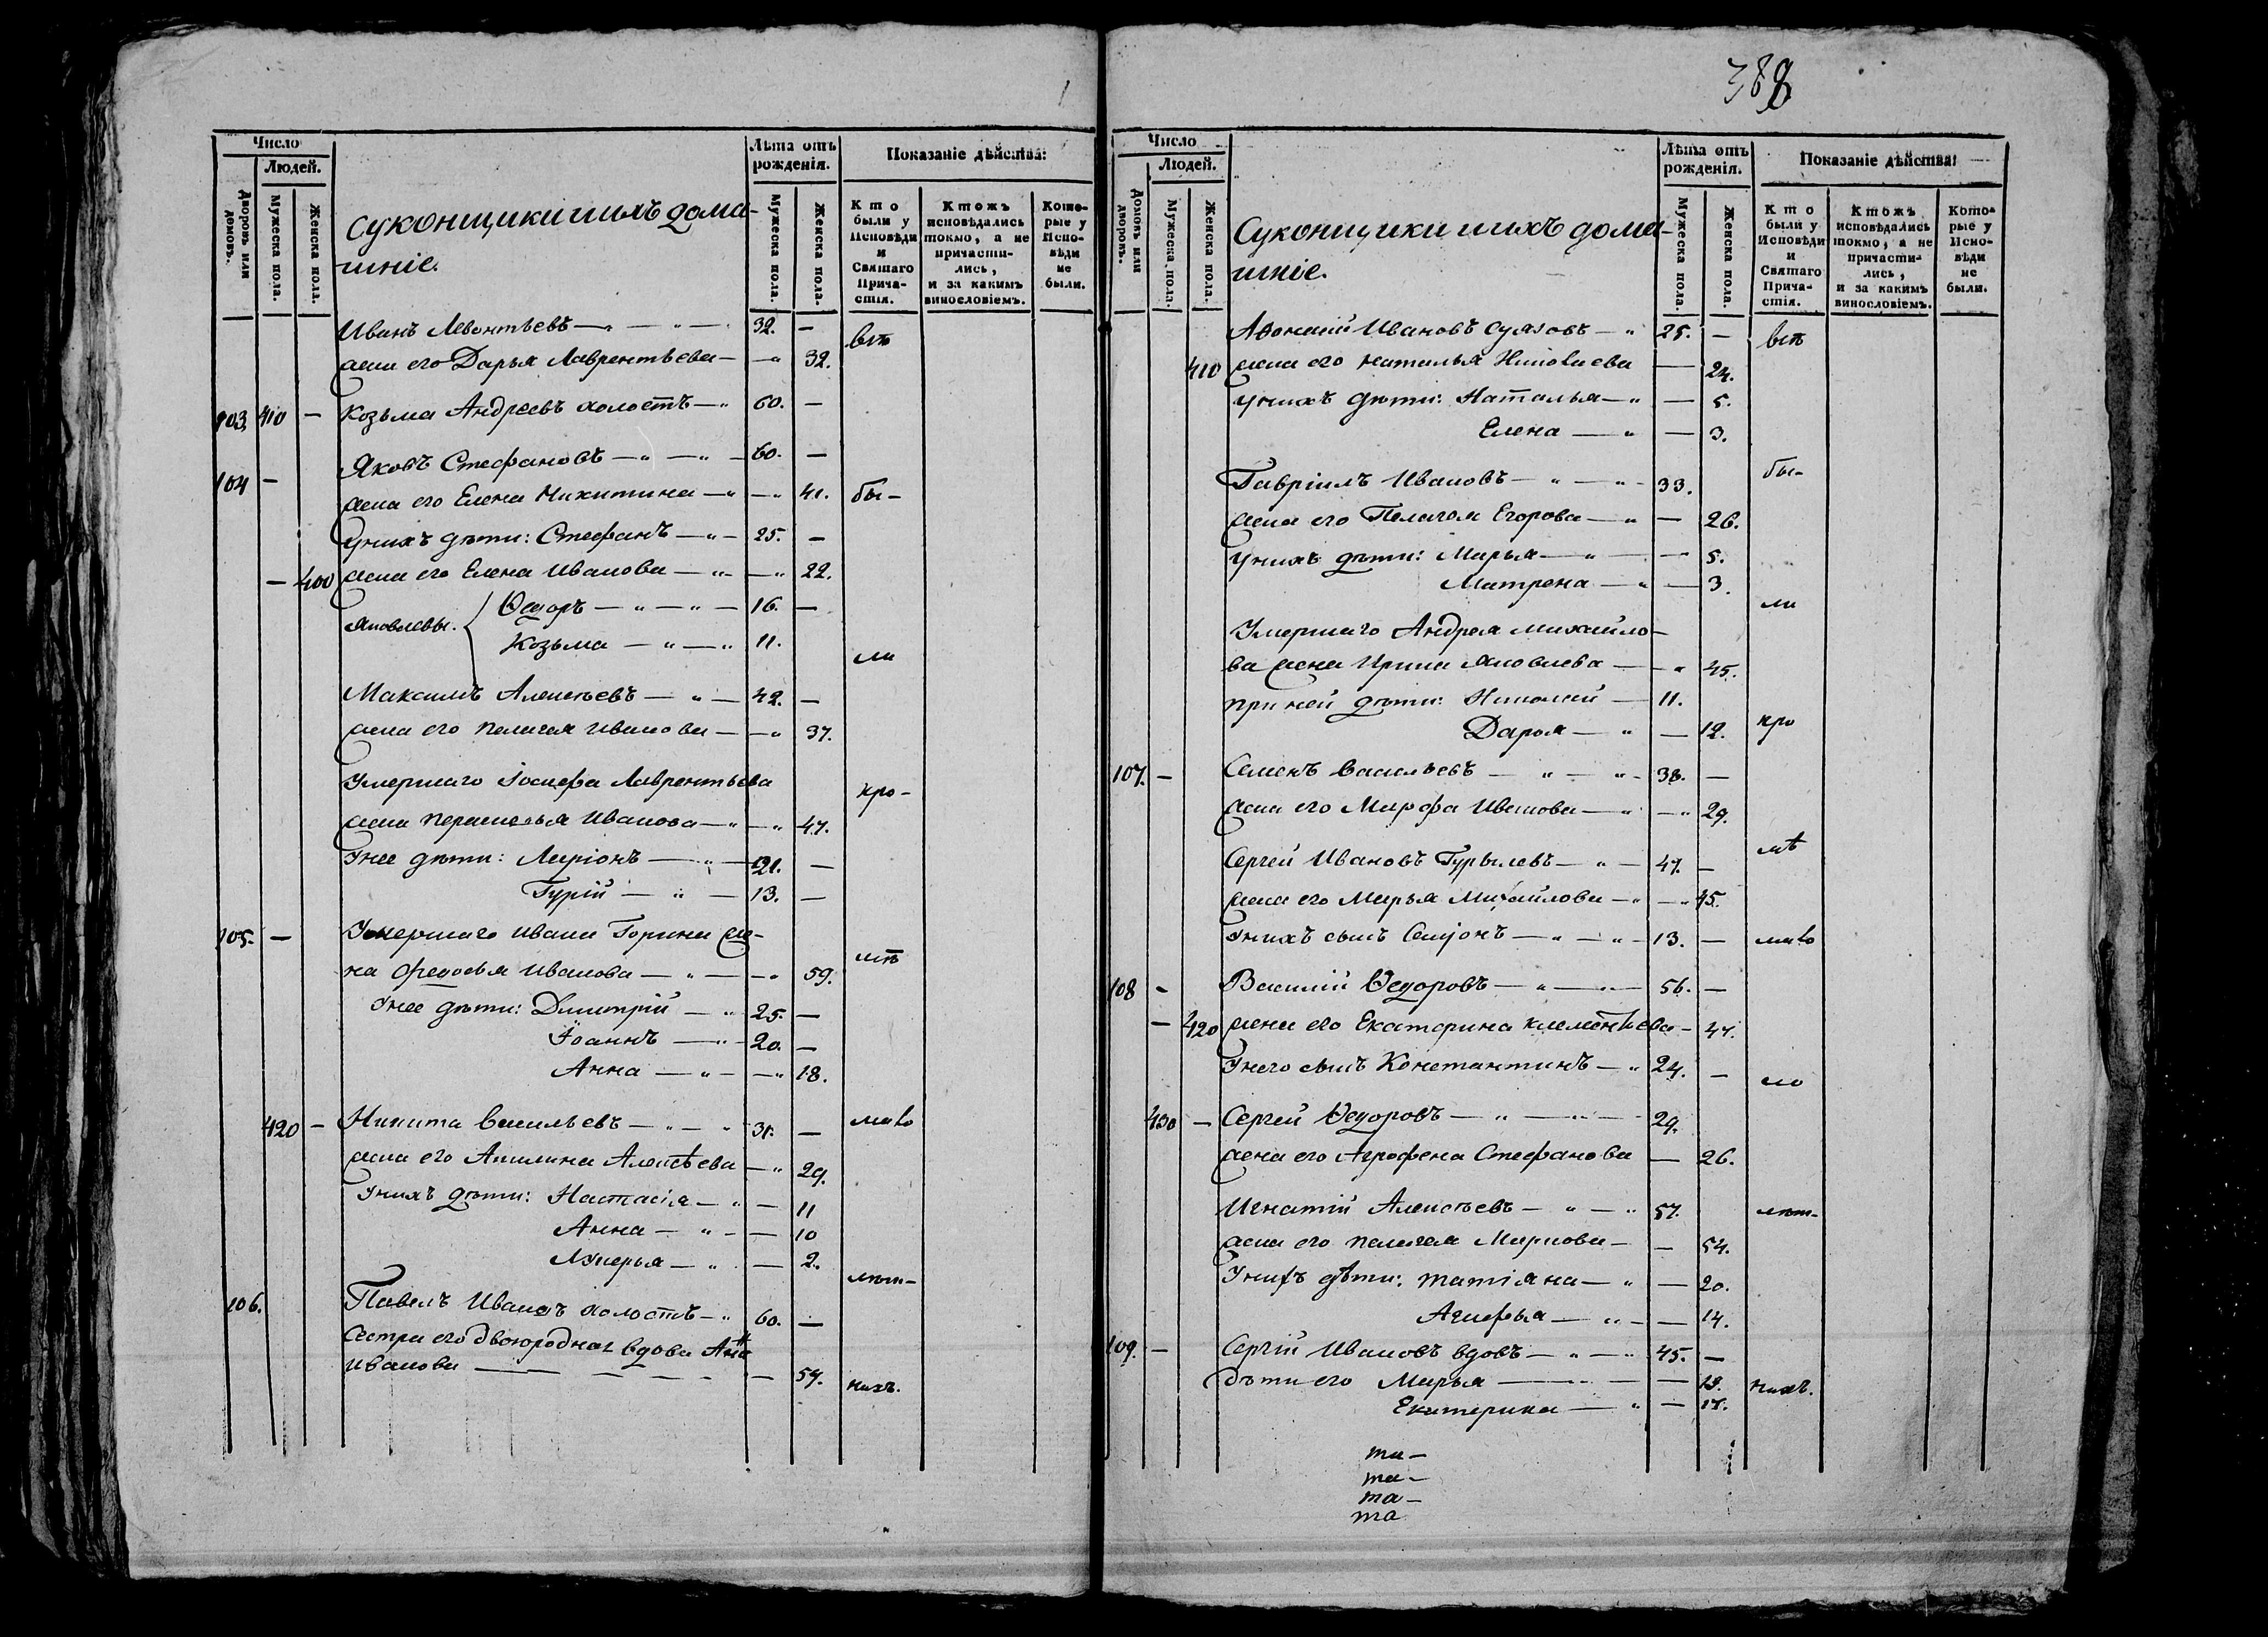 388
Число
Людей.
Дворовъ или домовъ.
Мужеска пола.
Женска пола.
Суконщики и ихъ дома-
шніе.
Лѣта отъ рожденія.
Мужеска пола.
Женска пола.
Показаніе дѣйства:
Кто были у Исповѣди и Святаго Прича-стія.
Ктожъ исповѣдались токмо, а не причасти-лись, и за какимъ винословіемъ.
Кото-рые у Испо-вѣди не были.
Иванъ Левонтьевъ — " — " — 32. — всѣ
жена его Дарья Лаврентьева — — " 32.
103. 410 — Козьма Андреевъ холостъ — " 60. —
104 — Яковъ Стефановъ — " — " — 60. —
жена его Елена Никитина — " — " 41. бы-
у нихъ дѣти: Стефанъ — " — 25. —
— 400 жена его Елена Иванова — " — — " 22.
Яковлевы. Ѳедоръ — " — " — 16. —
Козьма — " — " 11.
ли
Максимъ Алексѣевъ — " — 42. —
жена его Пелагея Иванова — — " 37.
Умершаго Іосифа Лаврентьева
кро-
жена Парасковья Иванова — " — " 47.
У нее дѣти: Ларіонъ — " — 21. —
Гурій — " — 13. —
105. — Умершаго Ивана Горина же-
мѣ
на Федосья Иванова — " — — " 59.
У нее дѣти: Дмитрій — " 25. —
Іоаннъ — " 20. —
Анна — " — — " 18.
420 — Никита Васильевъ — " — " 31. — мало
жена его Акилина Алексѣева — " 29.
У нихъ дѣти: Настасія — " — 11
Анна — " — — 10
Лукерья — " — 2.
лѣт-
106. Павелъ Ивановъ холостъ — " 60. —
Сестра его двоюродная вдова Анна
Иванова — — — — — 57. нихъ.
Число
Людей.
Домовъ или дворовъ.
Мужеска пола.
Женска пола.
Суконщики и ихъ дома-
шніе.
Лѣта отъ рожденія.
Мужеска пола
Женска пола.
Показаніе дѣйства:
Кто были у Исповѣди и Святаго Прича-стія.
Ктожъ исповѣдались токмо, а не причасти-лись, и за какимъ винословіемъ.
Кото-рые у Испо-вѣди не были.
Ивановъ — " 25. — всѣ
410 жена его Наталья Николаева — 24.
у нихъ дѣти: Наталья — " — 5.
Елена — " — 3.
бы-
Гавріилъ Ивановъ — " — " — 33.
жена его Пелагея Егорова — " — 26.
у нихъ дѣти: Марья — " — 5.
Матрена — " — 3.
ли
Умершаго Андрея Михайло-
ва жена Ирина Яковлева — " 45.
при ней дѣти: Николай — 11.
Дарья — " — 12. кро
107. — Семенъ Васильевъ — " — " — 38. —
жена его Марфа Иванова — " — " 29.
мѣ
Сергей Ивановъ Гурылевъ — " — 47. —
жена его Марья Михайлова — " — " 45.
У нихъ сынъ Семіонъ — " — " — 13. — мало
108 — Василій Ѳедоровъ — " — " — 56. —
— 420 жена его Екатерина Клементьева — 47.
У него сынъ Константинъ — " 24. —
430 — Сергей Ѳедоровъ — " — " — 29.
жена его Агрофена Стефанова — 26.
Игнатій Алексѣевъ — " — " 57. лѣт-
жена его Пелагея Маркова — — 54.
У нихъ дѣти: Татіяна — " — 20.
Агафья — " — — 14.
109. — Сергій Ивановъ вдовъ — " — " 45. —
дѣти его Марья — " — — 19. нихъ.
Екатерина — " — 17.
та-
та-
та-
та